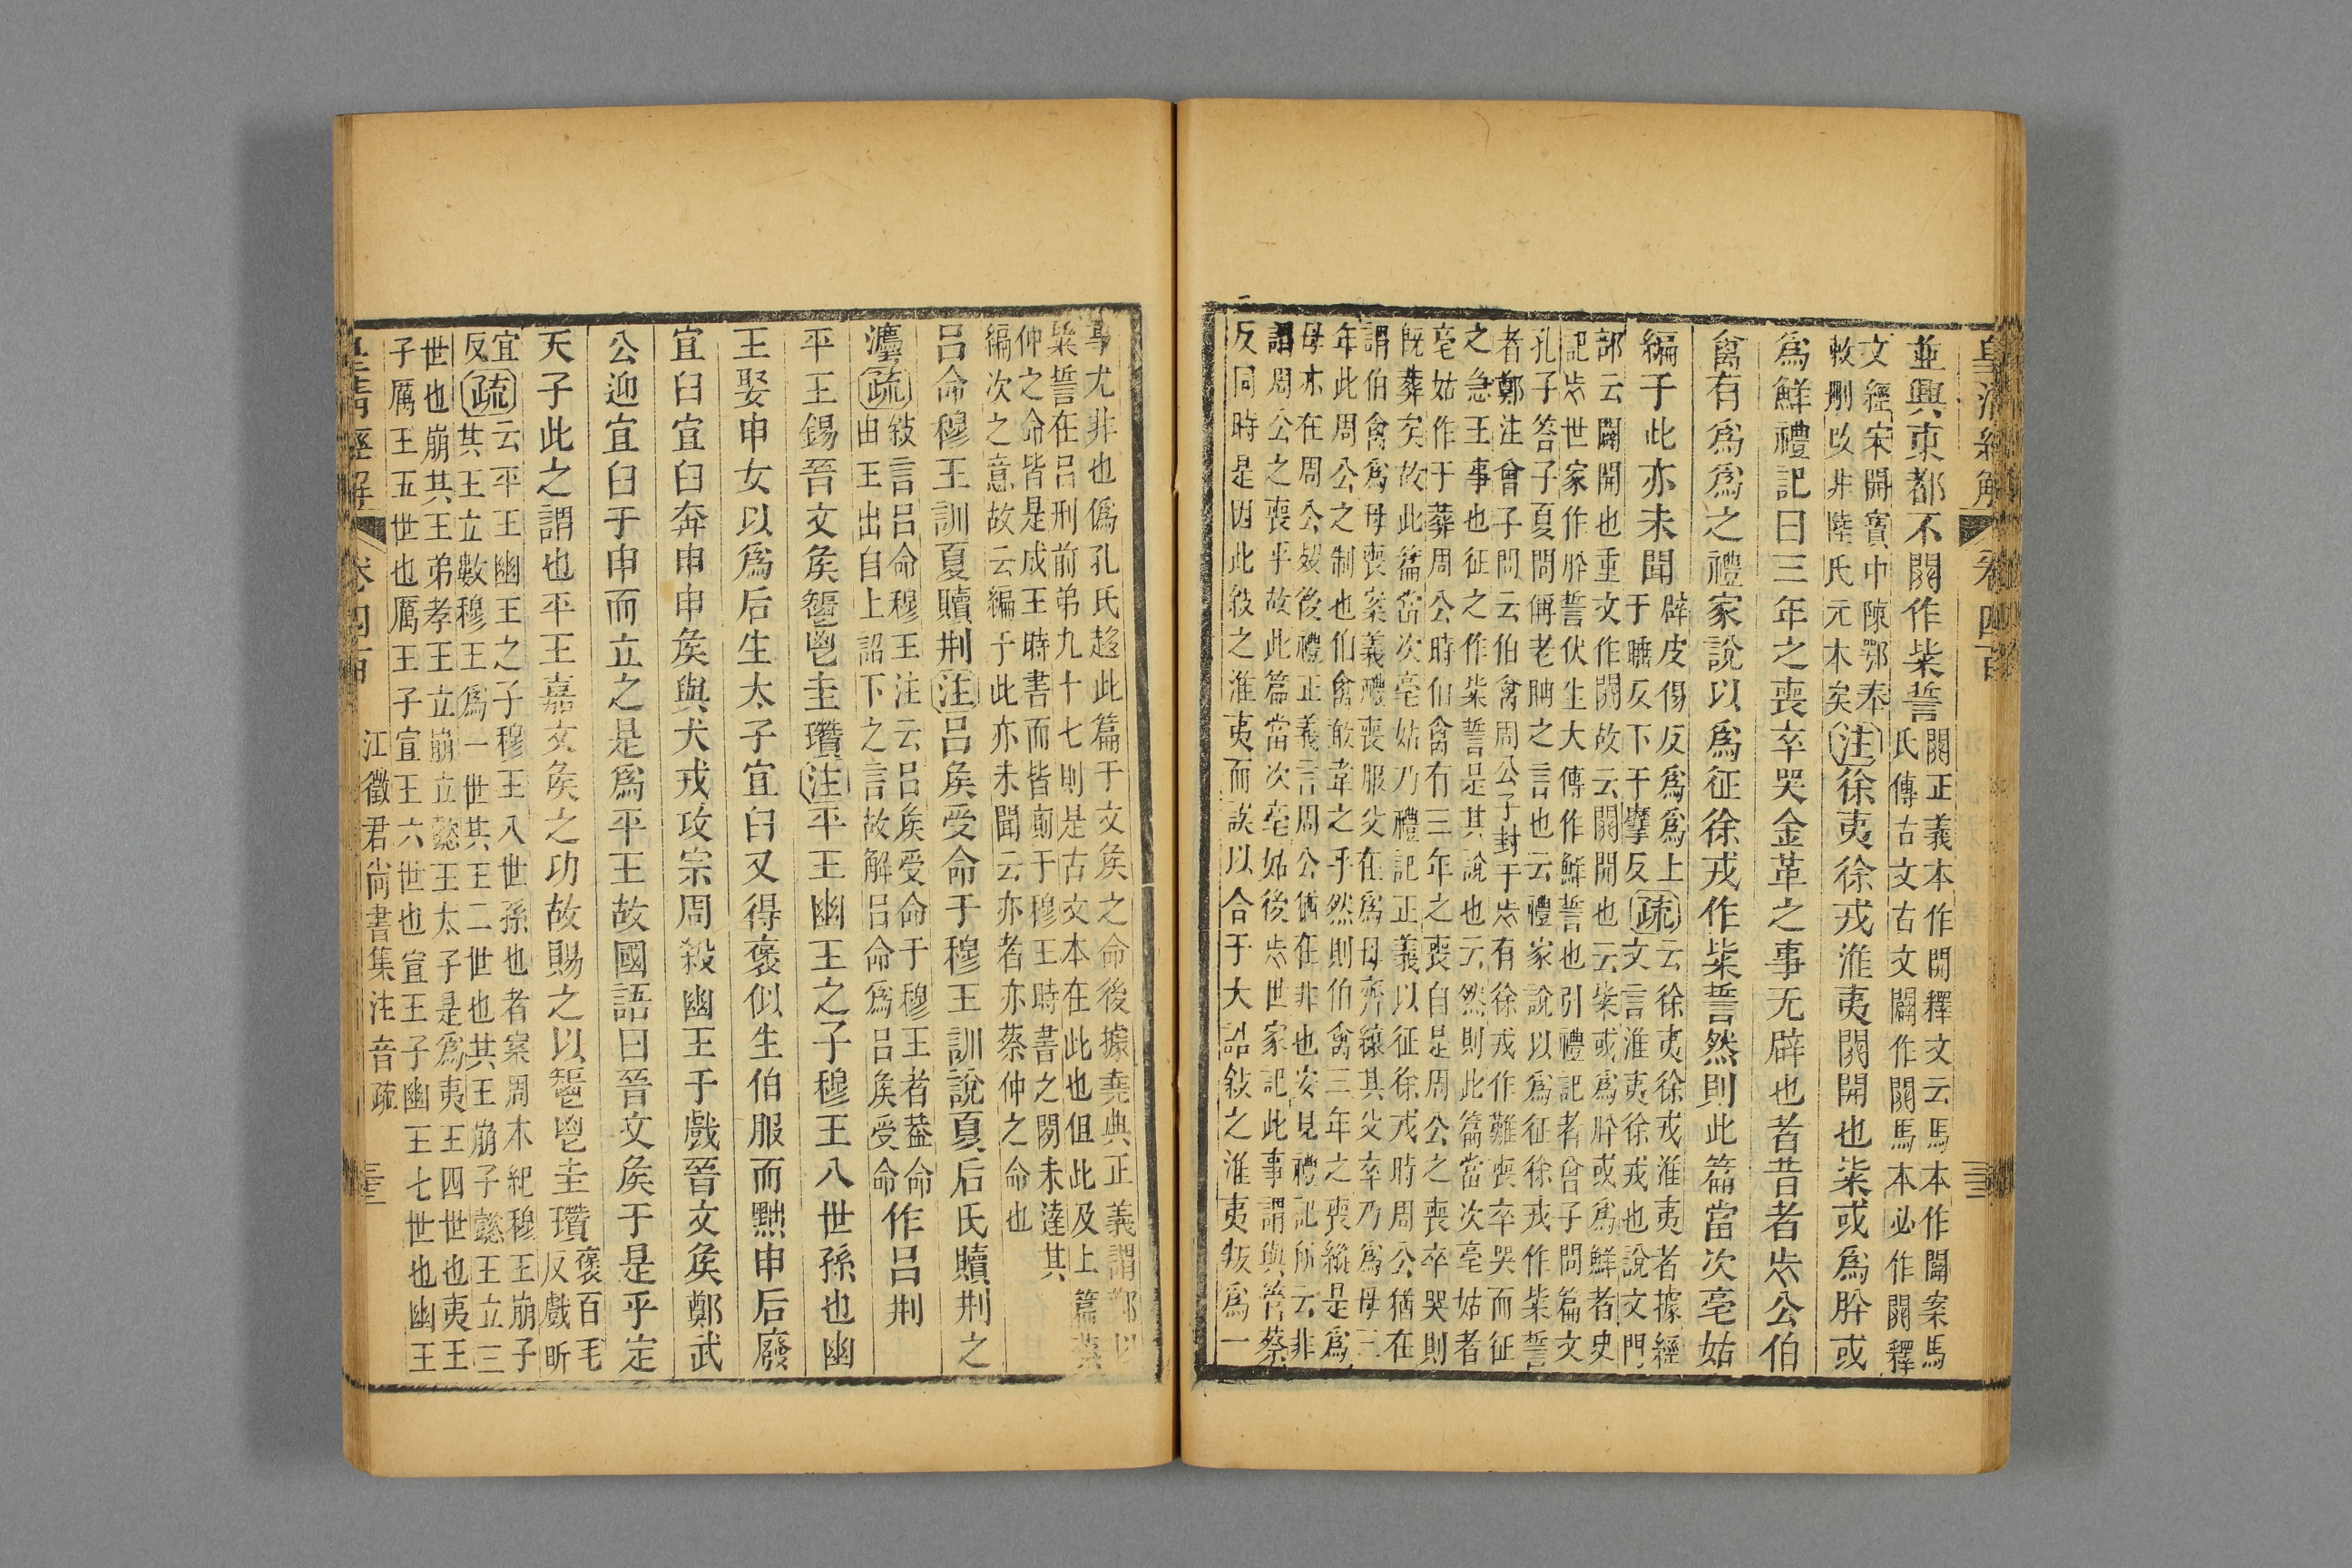 皇清經解 卷四百
並興東都不開作柴誓
開正義本作開釋文云馬本作闢案馬
氏傳古文古文闢作開馬本必作開釋
文經宋開寶中陳鄂奉
敕刪改非陸氏元本矣
注徐夷徐戎淮夷開開也柴或爲肸或
爲鮮禮記曰三年之喪卒哭金革之事无辟也者昔者魯公伯
禽有爲爲之禮家說以爲征徐戎作柴誓然則此篇當次亳姑
編于此亦未聞
辟皮傷反爲爲上
于瞻反下于擘反
疏
云徐夷徐戎淮夷者據經
文言淮夷徐戎也說文門
部云闢開也重文作開故云開開也云柴或爲肸或爲鮮者史
記魯世家作肸誓伏生大傳作鮮誓也引禮記者曾子問篇文
孔子答子夏問偁老聃之言也云禮家說以爲征徐戎作柴誓
者鄭注曾子問云伯禽周公子封于魯有徐戎作難喪卒哭而征
之急王事也征之作柴誓是其說也云然則此篇當次亳姑者
亳姑作于葬周公時伯禽有三年之喪自是周公之喪卒哭則
既葬矣故此篇當次亳姑乃禮記正義以征徐戎時周公猶在
謂伯禽爲母喪案義禮喪服父在爲母齊縗其父卒乃爲母三
年此周公之制也伯禽敢韋之乎然則伯禽三年之喪縱是爲
母亦在周公歿後禮正義言周公猶在非也安見禮記所云非
謂周公之喪乎故此篇當次亳姑後魯世家記此事謂與管蔡
反同時是因此敍之淮夷而誤以合于大誥敍之淮夷叛爲一
事尤非也僞孔氏趍此篇于文矦之命後據堯典正義謂鄭以
柴誓在呂刑前弟九十七則是古文本在此也但此及上篇蔡
仲之命皆是成王時書而皆廁于穆王時書之閒未達其
編次之意故云編于此亦未聞云亦者亦蔡仲之命也
呂命穆王訓夏贖荆注呂矦受命于穆王訓說夏后氏贖荆之
灋疏
敍言呂命穆王注云呂矦受命于穆王者葢命
由王出自上詔下之言故解呂命爲呂矦受命
作呂荆
平王錫晉文矦秬鬯圭瓚注平王幽王之子穆王八世孫也幽
王娶申女以爲后生太子宜臼又得褒似生伯服而黜申后廢
宜臼宜臼奔申申矦與犬戎攻宗周殺幽王于戲晉文矦鄭武
公迎宜臼于申而立之是爲平王故國語曰晉文矦于是乎定
天子此之謂也平王嘉文矦之功故賜之以秬鬯圭瓚
褒百毛
反戲昕
宜
反
疏
云平王幽王之子穆王八世孫也者案周本紀穆王崩子
其王立數穆王爲一世其王二世也其王崩子懿王立三
世也崩其王弟孝王立崩立懿王太子是爲夷王四世也夷王
子厲王五世也厲王子宣王六世也宣王子幽王七世也幽王
皇清經解 卷四百 江徵君尚書集注音疏